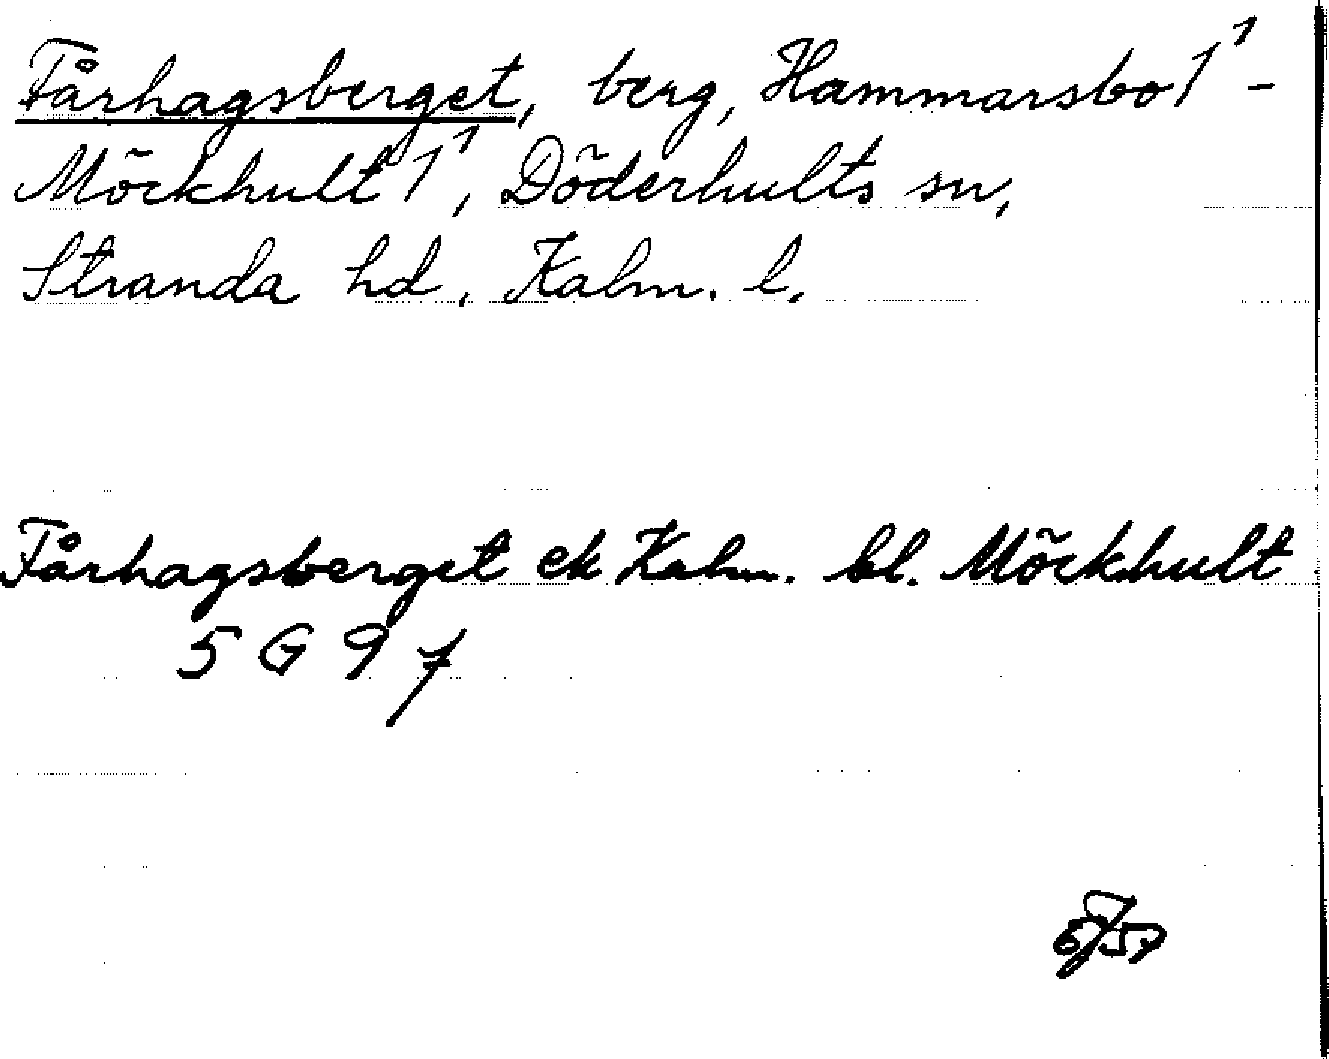 Fårhagsberget, berg, Hammarsbo 1¹ -
Möckhult 1¹, Döderhults sn,
Stranda hd, Kalm. l.
Fårhagsberget ek Kalm. bl. Möckhult
5 G 9 f